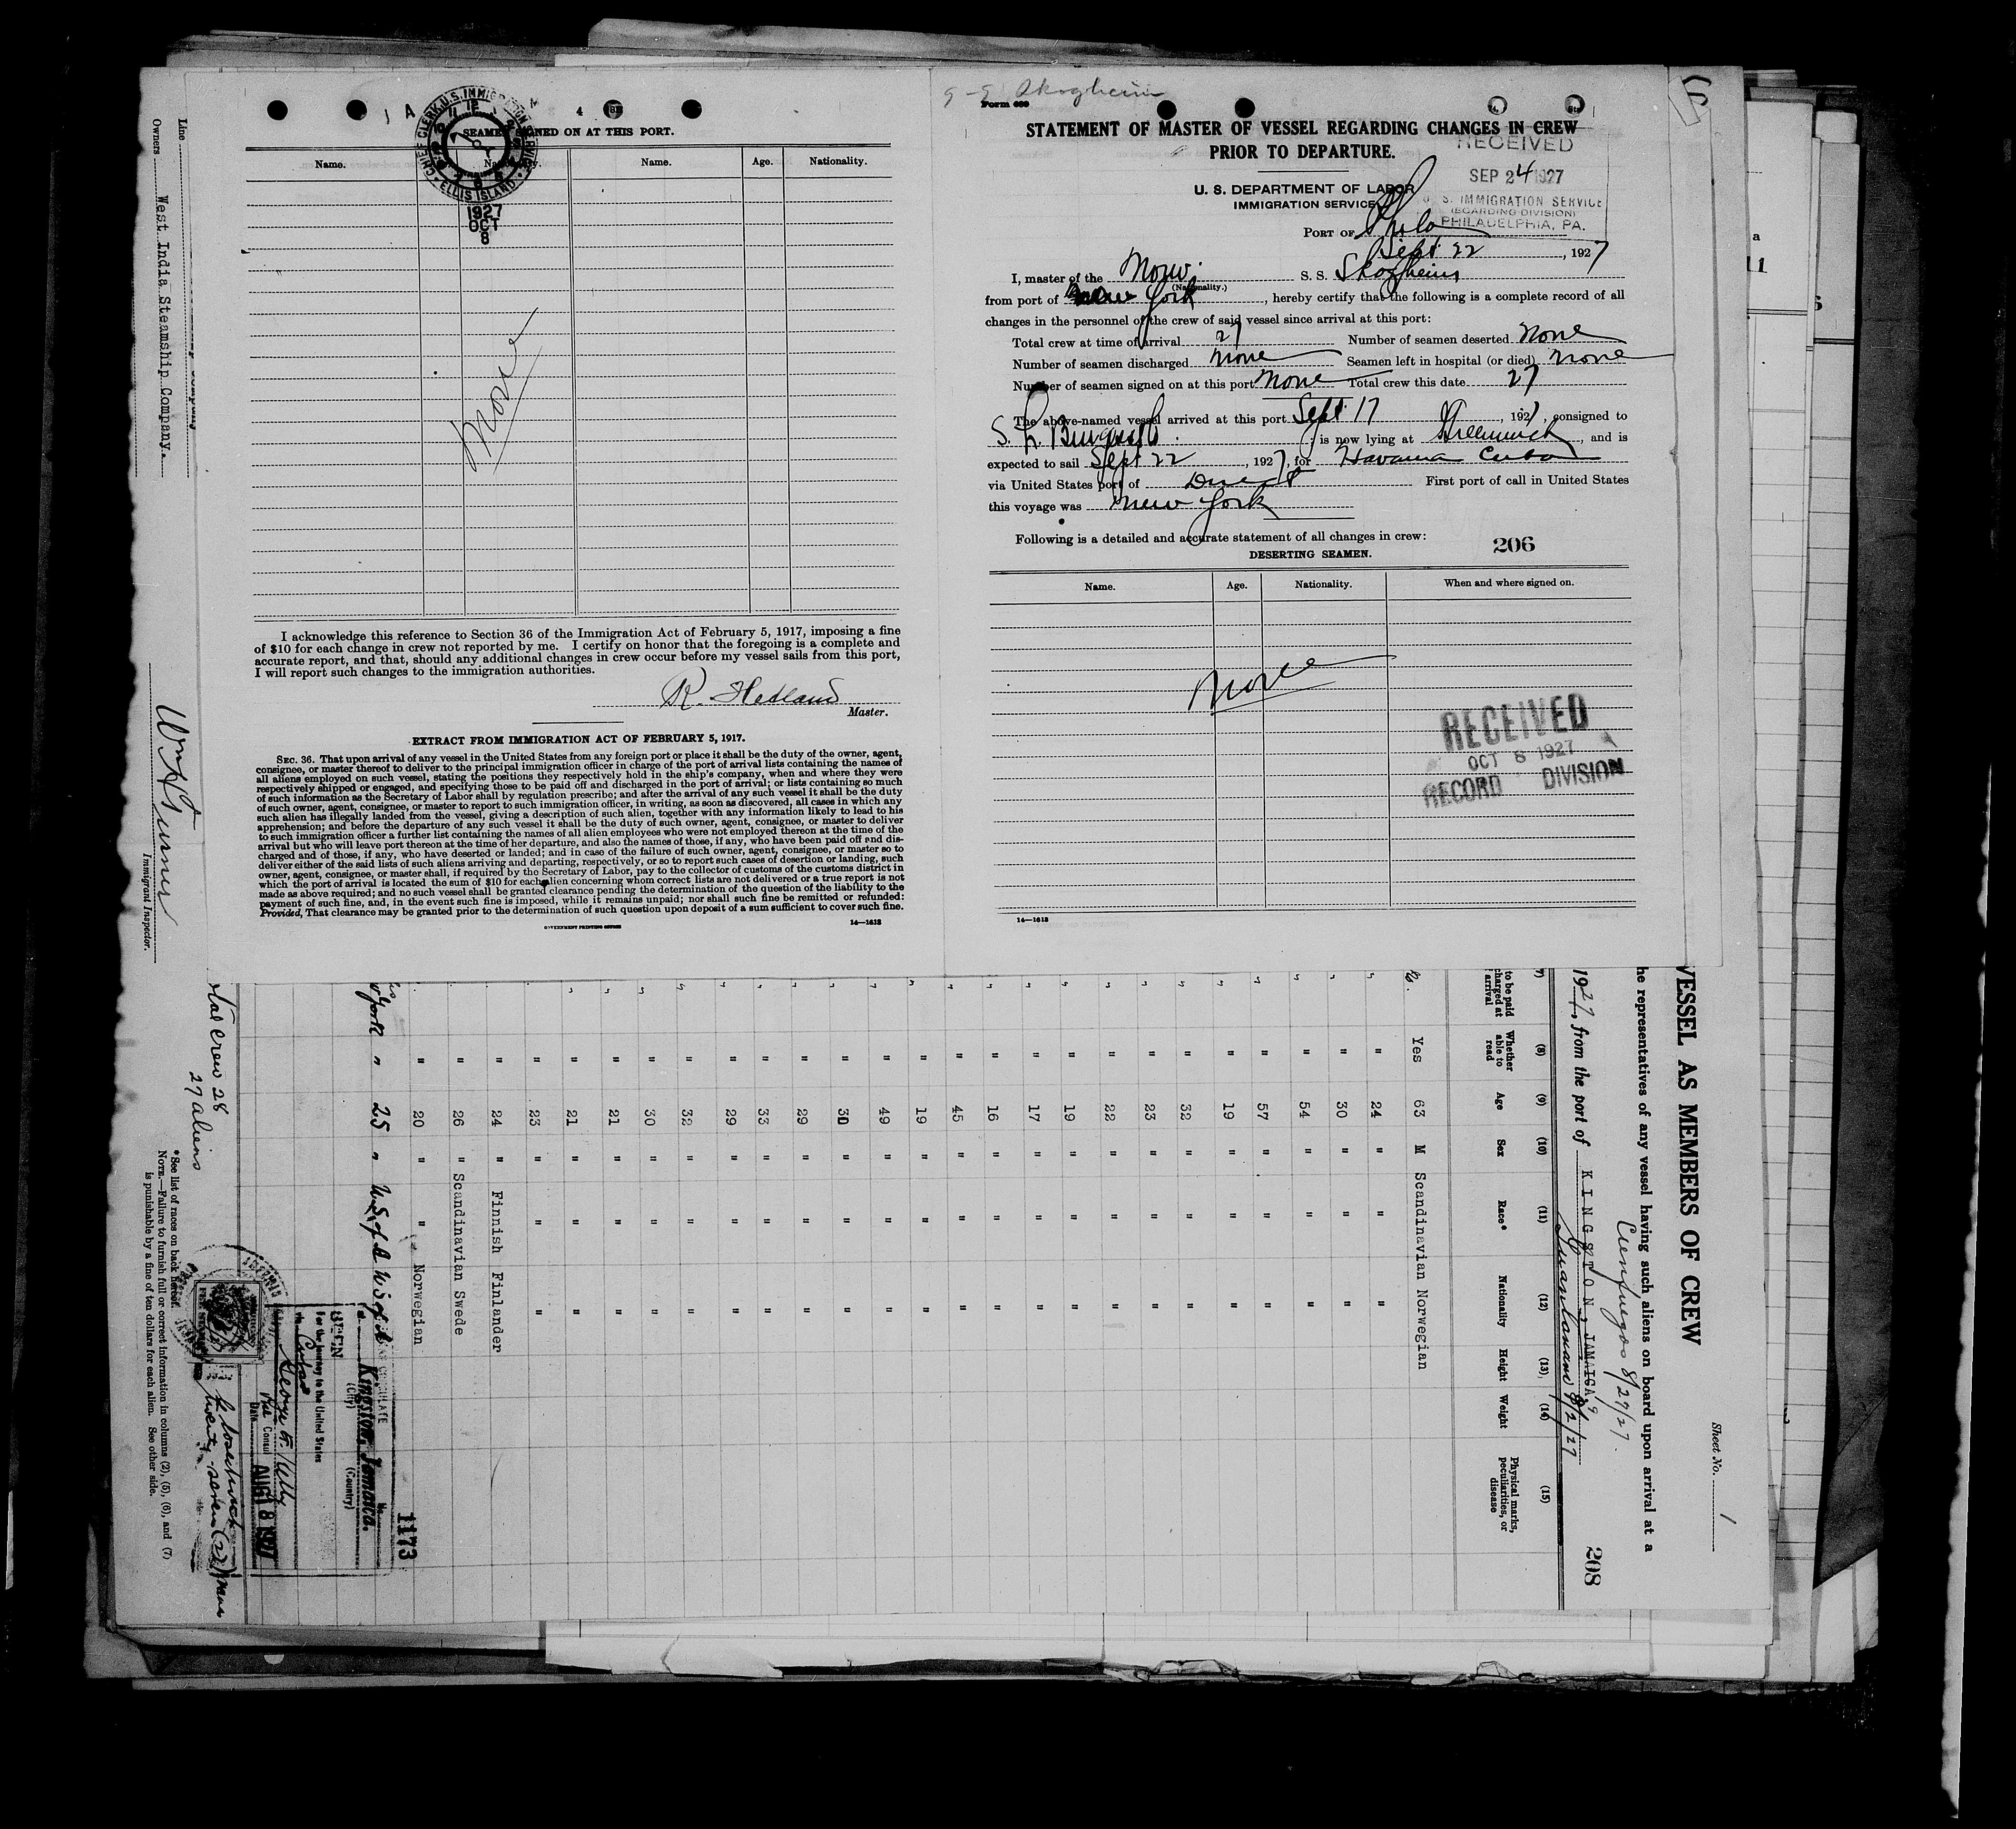 SEAMEN SIGNED ON AT THIS PORT.
CHIEF CLERK, U.S. IMMIGRATION SERVICE
ELLIS ISLAND
1927
OCT
8
Name. Nationality. Name. Age. Nationality.
None
I acknowledge this reference to Section 36 of the Immigration Act of February 5, 1917, imposing a fine
of $10 for each change in crew not reported by me. I certify on honor that the foregoing is a complete and
accurate report, and that, should any additional changes in crew occur before my vessel sails from this port,
I will report such changes to the immigration authorities.
R. Hetland
Master.
EXTRACT FROM IMMIGRATION ACT OF FEBRUARY 5, 1917.
SEC. 36. That upon arrival of any vessel in the United States from any foreign port or place it shall be the duty of the owner, agent,
consignee, or master thereof to deliver to the principal immigration officer in charge of the port of arrival lists containing the names of
all aliens employed on such vessel, stating the positions they respectively hold in the ship's company, when and where they were
respectively shipped or engaged, and specifying those to be paid off and discharged in the port of arrival; or lists containing so much
of such information as the Secretary of Labor shall by regulation prescribe; and after the arrival of any such vessel it shall be the duty
of such owner, agent, consignee, or master to report to such immigration officer, in writing, as soon as discovered, all cases in which any
such alien has illegally landed from the vessel, giving a description of such alien, together with any information likely to lead to his
apprehension; and before the departure of any such vessel it shall be the duty of such owner, agent, consignee, or master to deliver
to such immigration officer a further list containing the names of all alien employees who were not employed thereon at the time of the
arrival but who will leave port thereon at the time of her departure, and also the names of those, if any, who have been paid off and dis-
charged and of those, if any, who have deserted or landed; and in case of the failure of such owner, agent, consignee, or master so to
deliver either of the said lists of such aliens arriving and departing, respectively, or so to report such cases of desertion or landing, such
owner, agent, consignee, or master shall, if required by the Secretary of Labor, pay to the collector of customs of the customs district in
which the port of arrival is located the sum of $10 for each alien concerning whom correct lists are not delivered or a true report is not
made as above required; and no such vessel shall be granted clearance pending the determination of the question of the liability to the
payment of such fine, and, in the event such fine is imposed, while it remains unpaid; nor shall such fine be remitted or refunded:
Provided, That clearance may be granted prior to the determination of such question upon deposit of a sum sufficient to cover such fine.
GOVERNMENT PRINTING OFFICE 14—1618
9-9 Skogheim
Form 689
STATEMENT OF MASTER OF VESSEL REGARDING CHANGES IN CREW
PRIOR TO DEPARTURE.
RECEIVED
SEP 24 1927
U. S. IMMIGRATION SERVICE
(BOARDING DIVISION)
PHILADELPHIA, PA.
U. S. DEPARTMENT OF LABOR
IMMIGRATION SERVICE
PORT OF Phila
Sept 22, 1927
I, master of the Norw. S. S. Skogheim
(Nationality.)
from port of New York, hereby certify that the following is a complete record of all
changes in the personnel of the crew of said vessel since arrival at this port:
Total crew at time of arrival 27 Number of seamen deserted None
Number of seamen discharged None Seamen left in hospital (or died) None
Number of seamen signed on at this port None Total crew this date 27
The above-named vessel arrived at this port Sept 17, 1927, consigned to
S. L. Burgess; is now lying at Greenwich, and is
expected to sail Sept 22, 1927, for Havana Cuba
via United States port of Direct First port of call in United States
this voyage was New York
Following is a detailed and accurate statement of all changes in crew:
206
DESERTING SEAMEN.
Name. Age. Nationality. When and where signed on.
None
RECEIVED
OCT 8 1927
RECORD DIVISION
14—1618
Sheet No. 1
VESSEL AS MEMBERS OF CREW
he representatives of any vessel having such aliens on board upon arrival at a
Cienfuegos 8/27/27.
1927, from the port of KINGSTON, JAMAICA,
208
(7) (8) (9) (10) (11) (12) (13) (14) (15)
to be paid charged at arrival Whether able to read Age Sex Race* Nationality Height Weight Physical marks, peculiarities, or disease
Yes 63 M Scandinavian Norwegian
" 24 " " "
" 30 " " "
" 54 " " "
" 57 " " "
" 19 " " "
" 32 " " "
" 23 " " "
" 22 " " "
" 19 " " "
" 17 " " "
" 16 " " "
" 45 " " "
" 19 " " "
" 49 " " "
" 30 " " "
" 29 " " "
" 33 " " "
" 29 " " "
" 32 " " "
" 30 " " "
" 21 " " "
" 21 " " "
" 23 " " "
" 24 " Finnish Finlander
" 26 " Scandinavian Swede
" 20 " " Norwegian
York " 25 " U.S. of A U.S. of A
1173
Kingston, Jamaica.
(City) (Country)
SEEN
For the journey to the United States
Cuba
Vice Consul
Date AUG 18 1927
Total Crew 28
27 aliens
twenty-seven (27) men
*See list of races on back hereof.
NOTE.—Failure to furnish full or correct information in columns (2), (5), (6), and (7)
is punishable by a fine of ten dollars for each alien. See other side.
Line
Owners West India Steamship Company.
Immigrant Inspector.